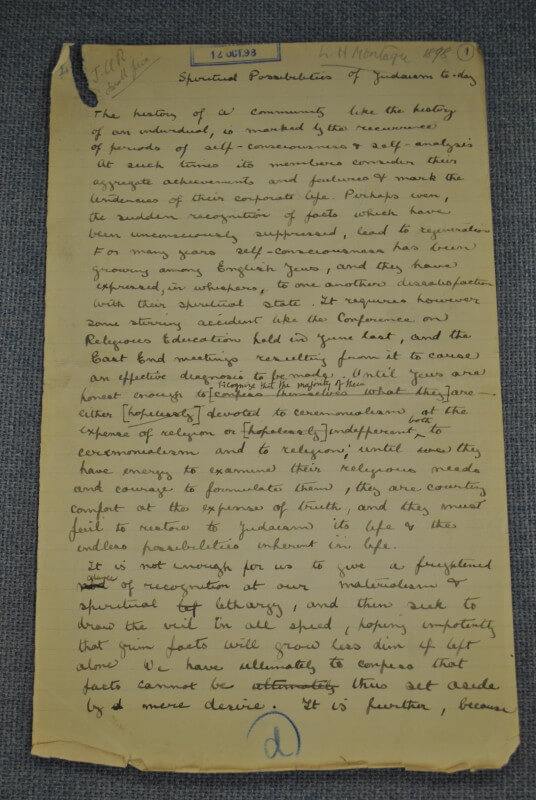 12 OCT. 98
L. H Montagu 1898 1
J.Q.R
Spiritual Possibilities of Judaism to-day
The history of a community like the history
of an individual, is marked by the recurrence
of periods of self-consciousness & self-analysis
At such times its members consider their
aggregate achievements and failures & mark the
tendencies of their corporate life. Perhaps even,
the sudden recognition of facts which have
been unconsciously suppressed, lead to regeneration
For many years self-consciousness has been
growing among English Jews, and they have
expressed, in whispers, to one another dissatisfaction
with their spiritual state. It requires however
some stirring accident like the Conference on
Religious Education held in June last, and the
East End meetings resulting from it to cause
an effective diagnosis to be made. Until Jews are
recognize that the majority of them
honest enough to [confess themselves what they] are
either [hopelessly] devoted to ceremonialism at the
expense of religion or [hopelessly] indifferent both to
ceremonialism and to religion; until they
have energy to examine their religious needs
and courage to formulate them, they are courting
comfort at the expense of truth, and they must
fail to restore to Judaism its life & the
endless possibilities inherent in life.
It is not enough for us to give a frightened
glance of recognition at our materialism &
spiritual lethargy, and then seek to
draw the veil in all speed, hoping impotently
that grim facts will grow less dim if left
alone. We have ultimately to confess that
facts cannot be ultimately thus set aside
by mere desire. It is further, because
d